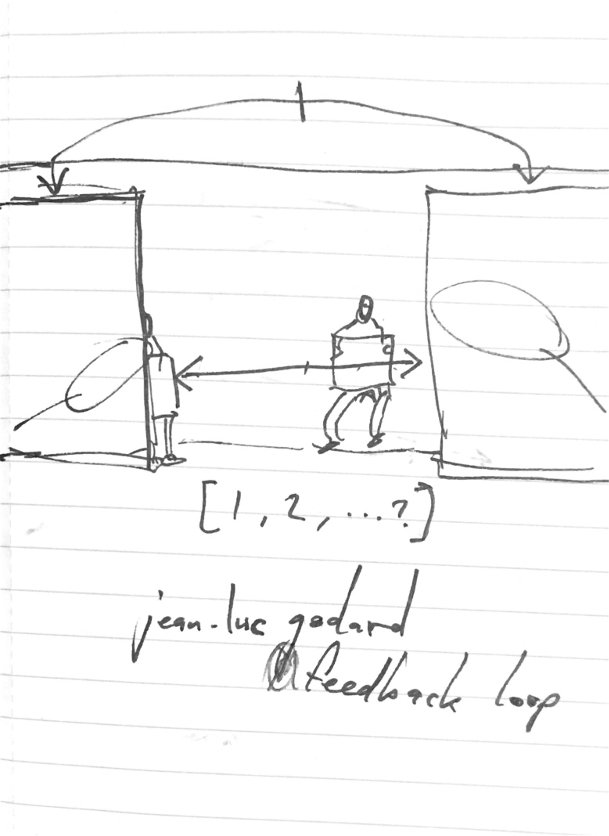 [1, 2, ...?]
jean-luc godard
feedback loop